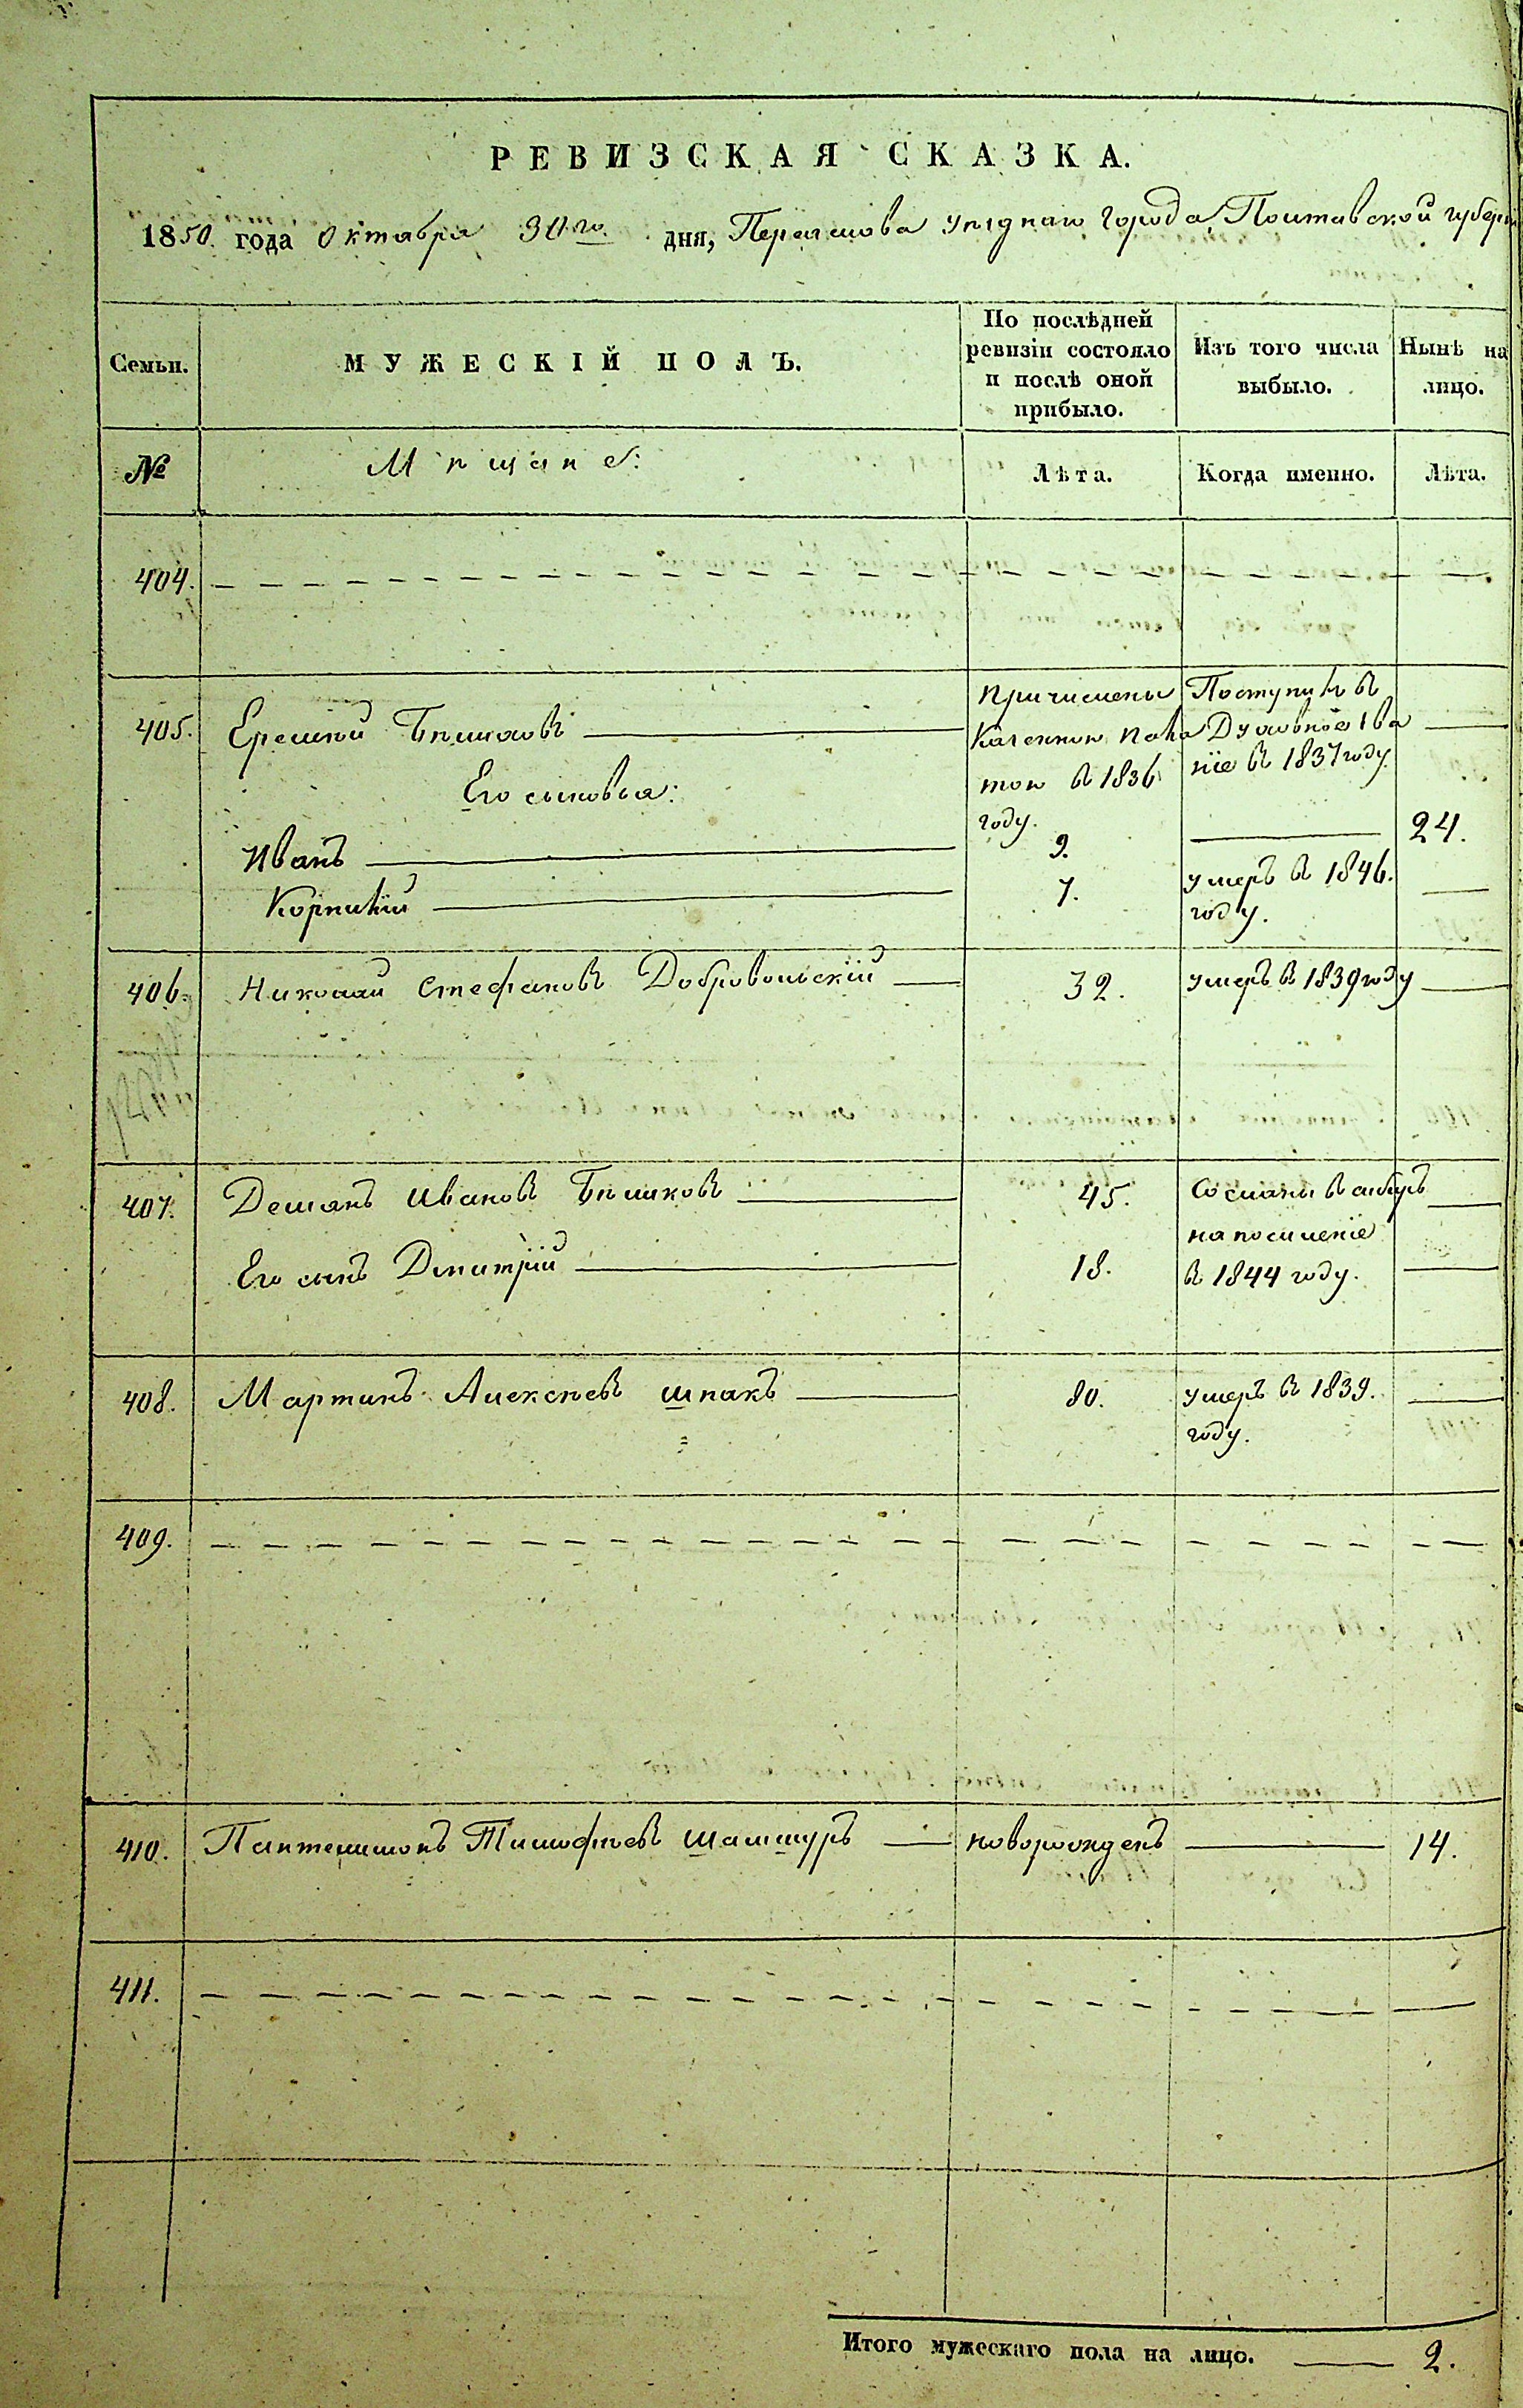 РЕВИЗСКАЯ СКАЗКА.
1850. года Октября 30го. дня, Переяслова уѣзднаго города, Полтавской губерн
Семьи.
МУЖЕСКІЙ ПОЛЪ.
По послѣдней
ревизіи состояло
и послѣ оной
прибыло.
Изъ того числа
выбыло.
Нынѣ на
лицо.
№
Мѣщане:
Лѣта.
Когда именно.
Лѣта.
404.
405. Еремѣй
Причислены
Казенною Пала
тою въ 1836
году.
Поступилъ въ
Духовное зва
ніе въ 1837 году.
Его сыновья:
Иванъ 9. 24.
Корнилій 7. умеръ въ 1846.
году.
406. Николай Стефановъ Добровольскій 32. умеръ въ 1839 году
407. Демянъ Ивановъ 45. Сосланы въ Сибирь
на поселеніе
Его сынъ Дмитрій 18. въ 1844 году.
408. Мартинъ Алексѣевъ Шпакъ 80. умеръ въ 1839.
году.
409.
410. Пантелимонъ Тимофѣевъ новорожденъ 14.
411.
Итого мужескаго пола на лицо. 2.